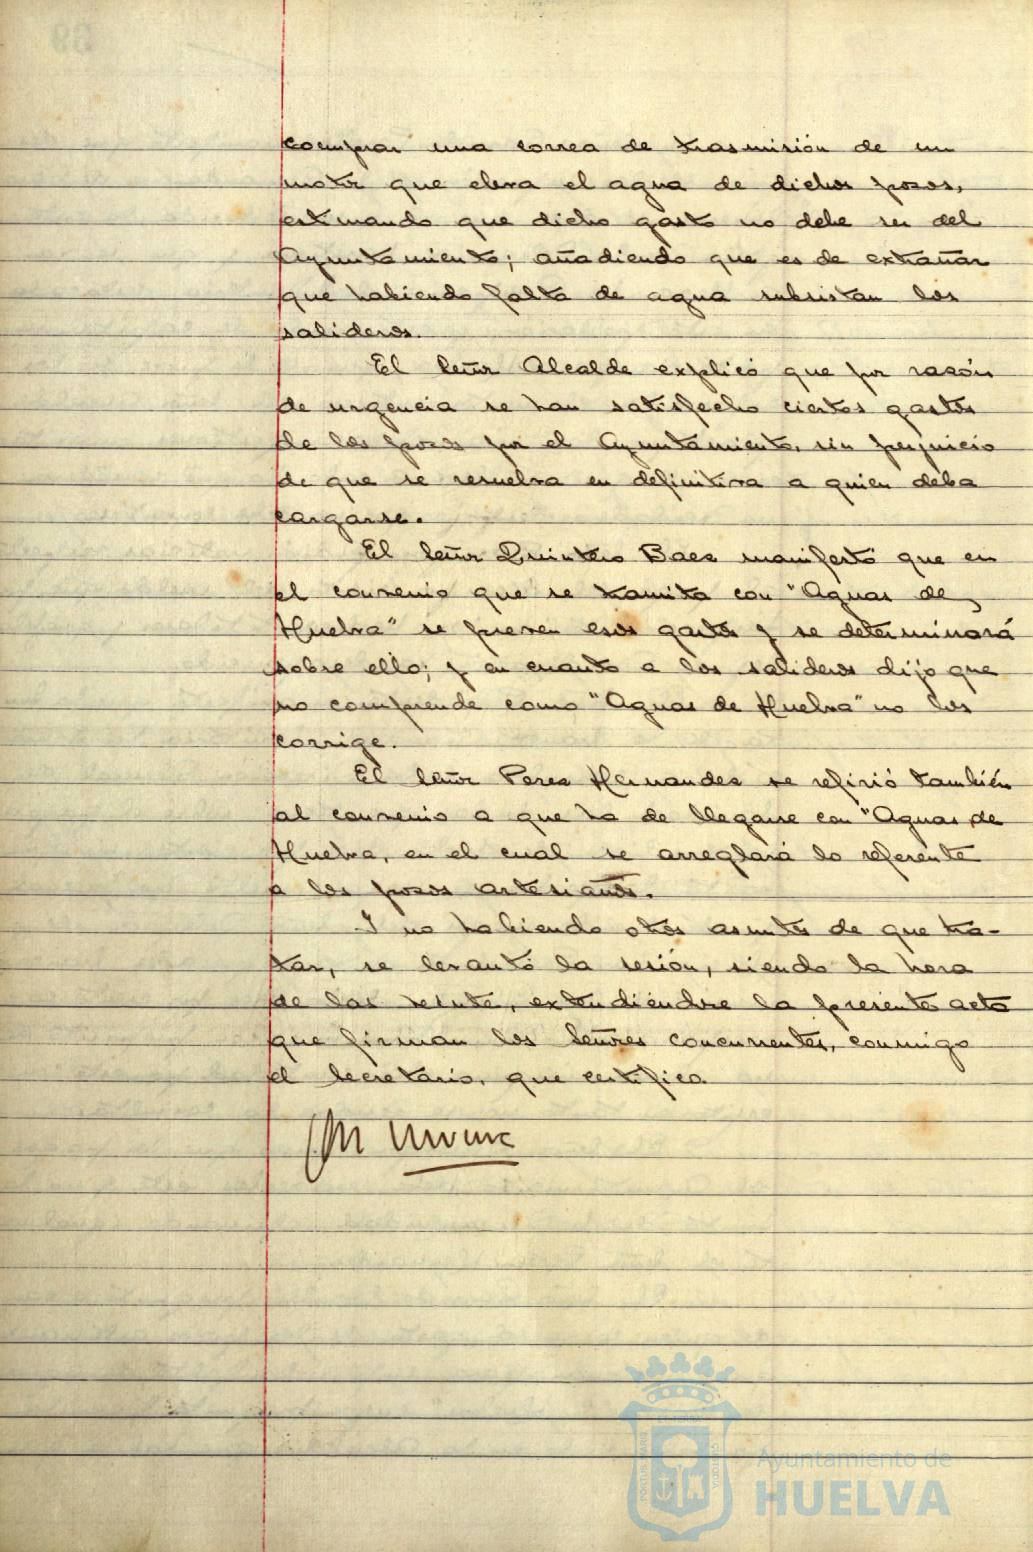 comprar una correa de trasmisión de un
motor que eleva el agua de dichos pozos,
estimando que dicho gasto no debe ser del
Ayuntamiento; añadiendo que es de extrañar
que habiendo falta de agua subsistan los
salideros.
El Señor Alcalde explicó que por razón
de urgencia se han satisfecho ciertos gastos
de los pozos por el Ayuntamiento, sin perjuicio
de que se resuelva en definitiva a quien deba
cargarse.
El Señor Quintero Baez manifestó que en
el convenio que se tramita con "Aguas de
Huelva" se preven esos gastos y se determinará
sobre ello; y en cuanto a los salideros dijo que
no comprende como "Aguas de Huelva" no los
corrige.
El Señor Perez Hernandez se refirió también
al convenio a que ha de llegarse con "Aguas de
Huelva, en el cual se arreglará lo referente
a los pozos artesianos.
Y no habiendo otros asuntos de que tra-
tar, se levantó la sesión, siendo la hora
de las veinte, extendiéndose la presente acta
que firman los Señores concurrentes, conmigo
el Secretario, que certifico.
Ayuntamiento de
HUELVA